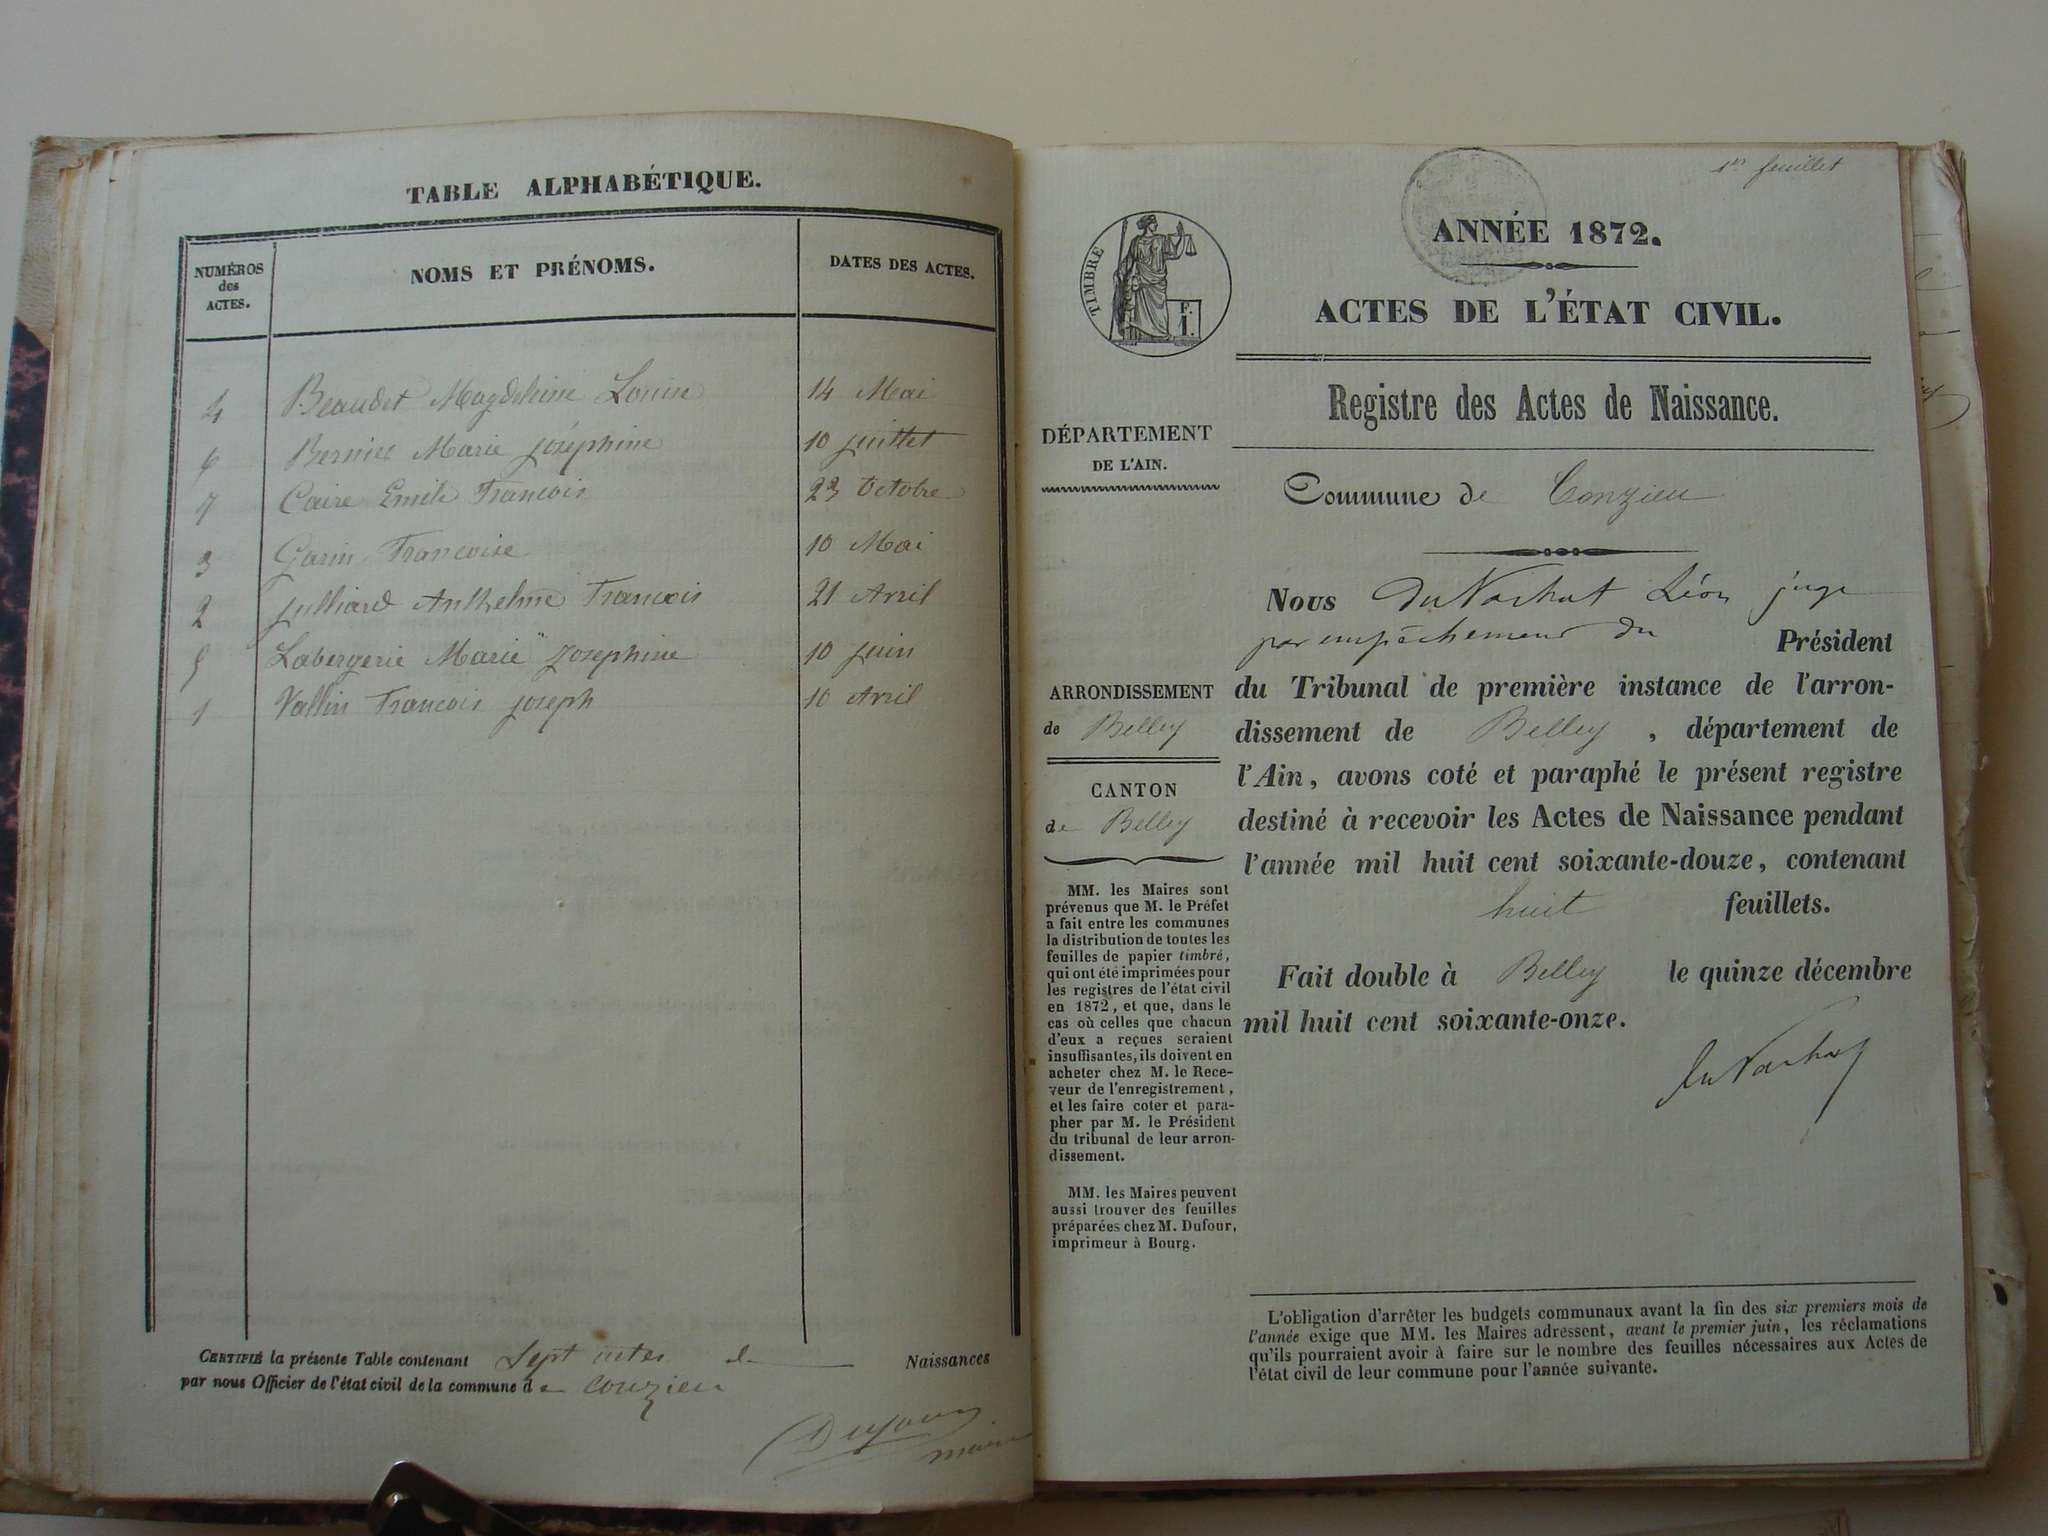 TABLE ALPHABÉTIQUE.
NUMÉROS des ACTES.
NOMS ET PRÉNOMS.
DATES DES ACTES.
4 Beaudet Magdeleine Louise 14 Mai
6 Bernier Marie Joséphine 10 juillet
7 Caire Emile François 23 Octobre
3 Garin Françoise 10 Mai
2 Julliard Anthelme François 21 Avril
5 Labergerie Marie Josephine 10 Juin
1 Vallin François Joseph 10 Avril
CERTIFIÉ la présente Table contenant Sept actes de Naissances
par nous Officier de l'état civil de la commune de Conzieu
Dufour
maire
1er feuillet
ANNÉE 1872.
TIMBRE
F.
1.
ACTES DE L'ÉTAT CIVIL.
Registre des Actes de Naissance.
DÉPARTEMENT
DE L'AIN.
Commune de Conzieu
Nous Léon juge
par empêchement du Président
ARRONDISSEMENT
de Belley
CANTON
de Belley
du Tribunal de première instance de l'arron-
dissement de Belley, département de
l'Ain, avons coté et paraphé le présent registre
destiné à recevoir les Actes de Naissance pendant
l'année mil huit cent soixante-douze, contenant
huit feuillets.
Fait double à Belley le quinze décembre
mil huit cent soixante-onze.
MM. les Maires sont
prévenus que M. le Préfet
a fait entre les communes
la distribution de toutes les
feuilles de papier timbré,
qui ont été imprimées pour
les registres de l'état civil
en 1872, et que, dans le
cas où celles que chacun
d'eux a reçues seraient
insuffisantes, ils doivent en
acheter chez M. le Rece-
veur de l'enregistrement,
et les faire coter et para-
pher par M. le Président
du tribunal de leur arron-
dissement.
MM. les Maires peuvent
aussi trouver des feuilles
préparées chez M. Dufour,
imprimeur à Bourg.
L'obligation d'arrêter les budgets communaux avant la fin des six premiers mois de
l'année exige que MM. les Maires adressent, avant le premier juin, les réclamations
qu'ils pourraient avoir à faire sur le nombre des feuilles nécessaires aux Actes de
l'état civil de leur commune pour l'année suivante.